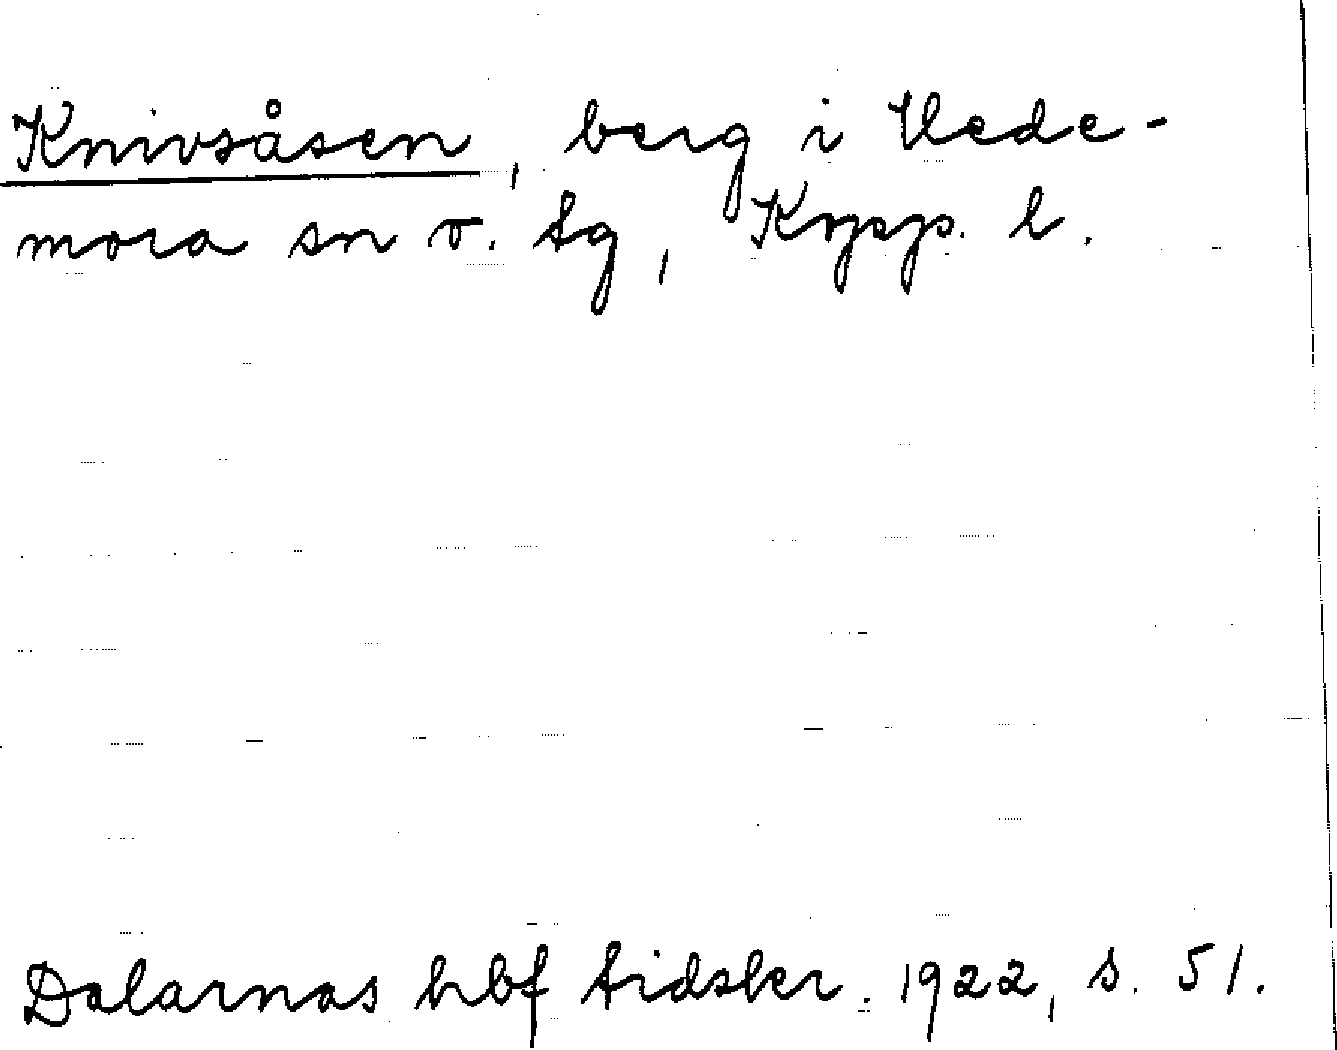 Knivsåsen, berg i Hede-
mora sn o. tg, Kopp. l.
Dalarnas hbf tidskr. 1922, s. 51.